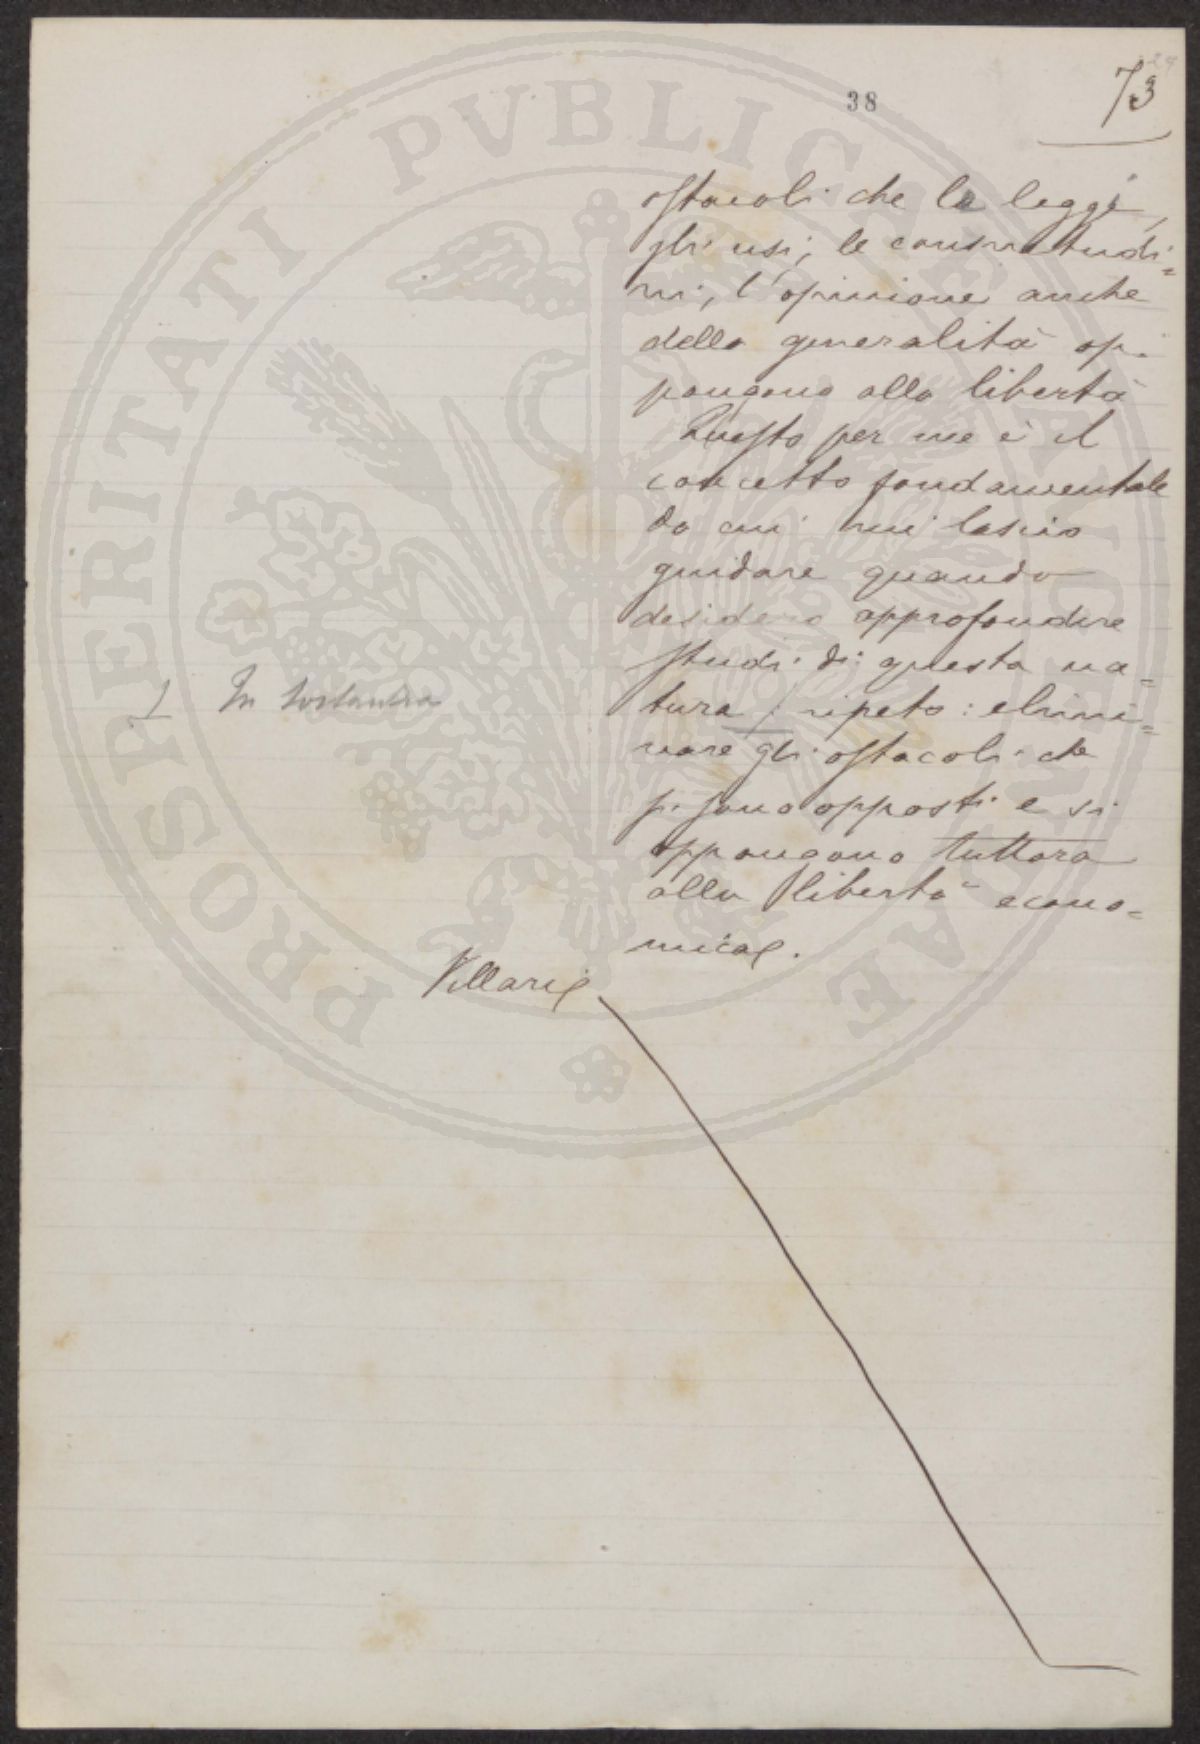 38
73
ostacoli che le leggi,
gli usi, le consuetudi=
ni, l'opinione anche
della generalità op=
pongono alla libertà
Questo per me è il
concetto fondamentale
da cui mi lascio
guidare quando
desidero approfondire
studi di questa na=
In sostanza
tura; ripeto: elimi=
nare gli ostacoli che
si sono opposti e si
oppongono tuttora
alla libertà econo=
mica.
Villari
PROSPERITATI PVBLICAE